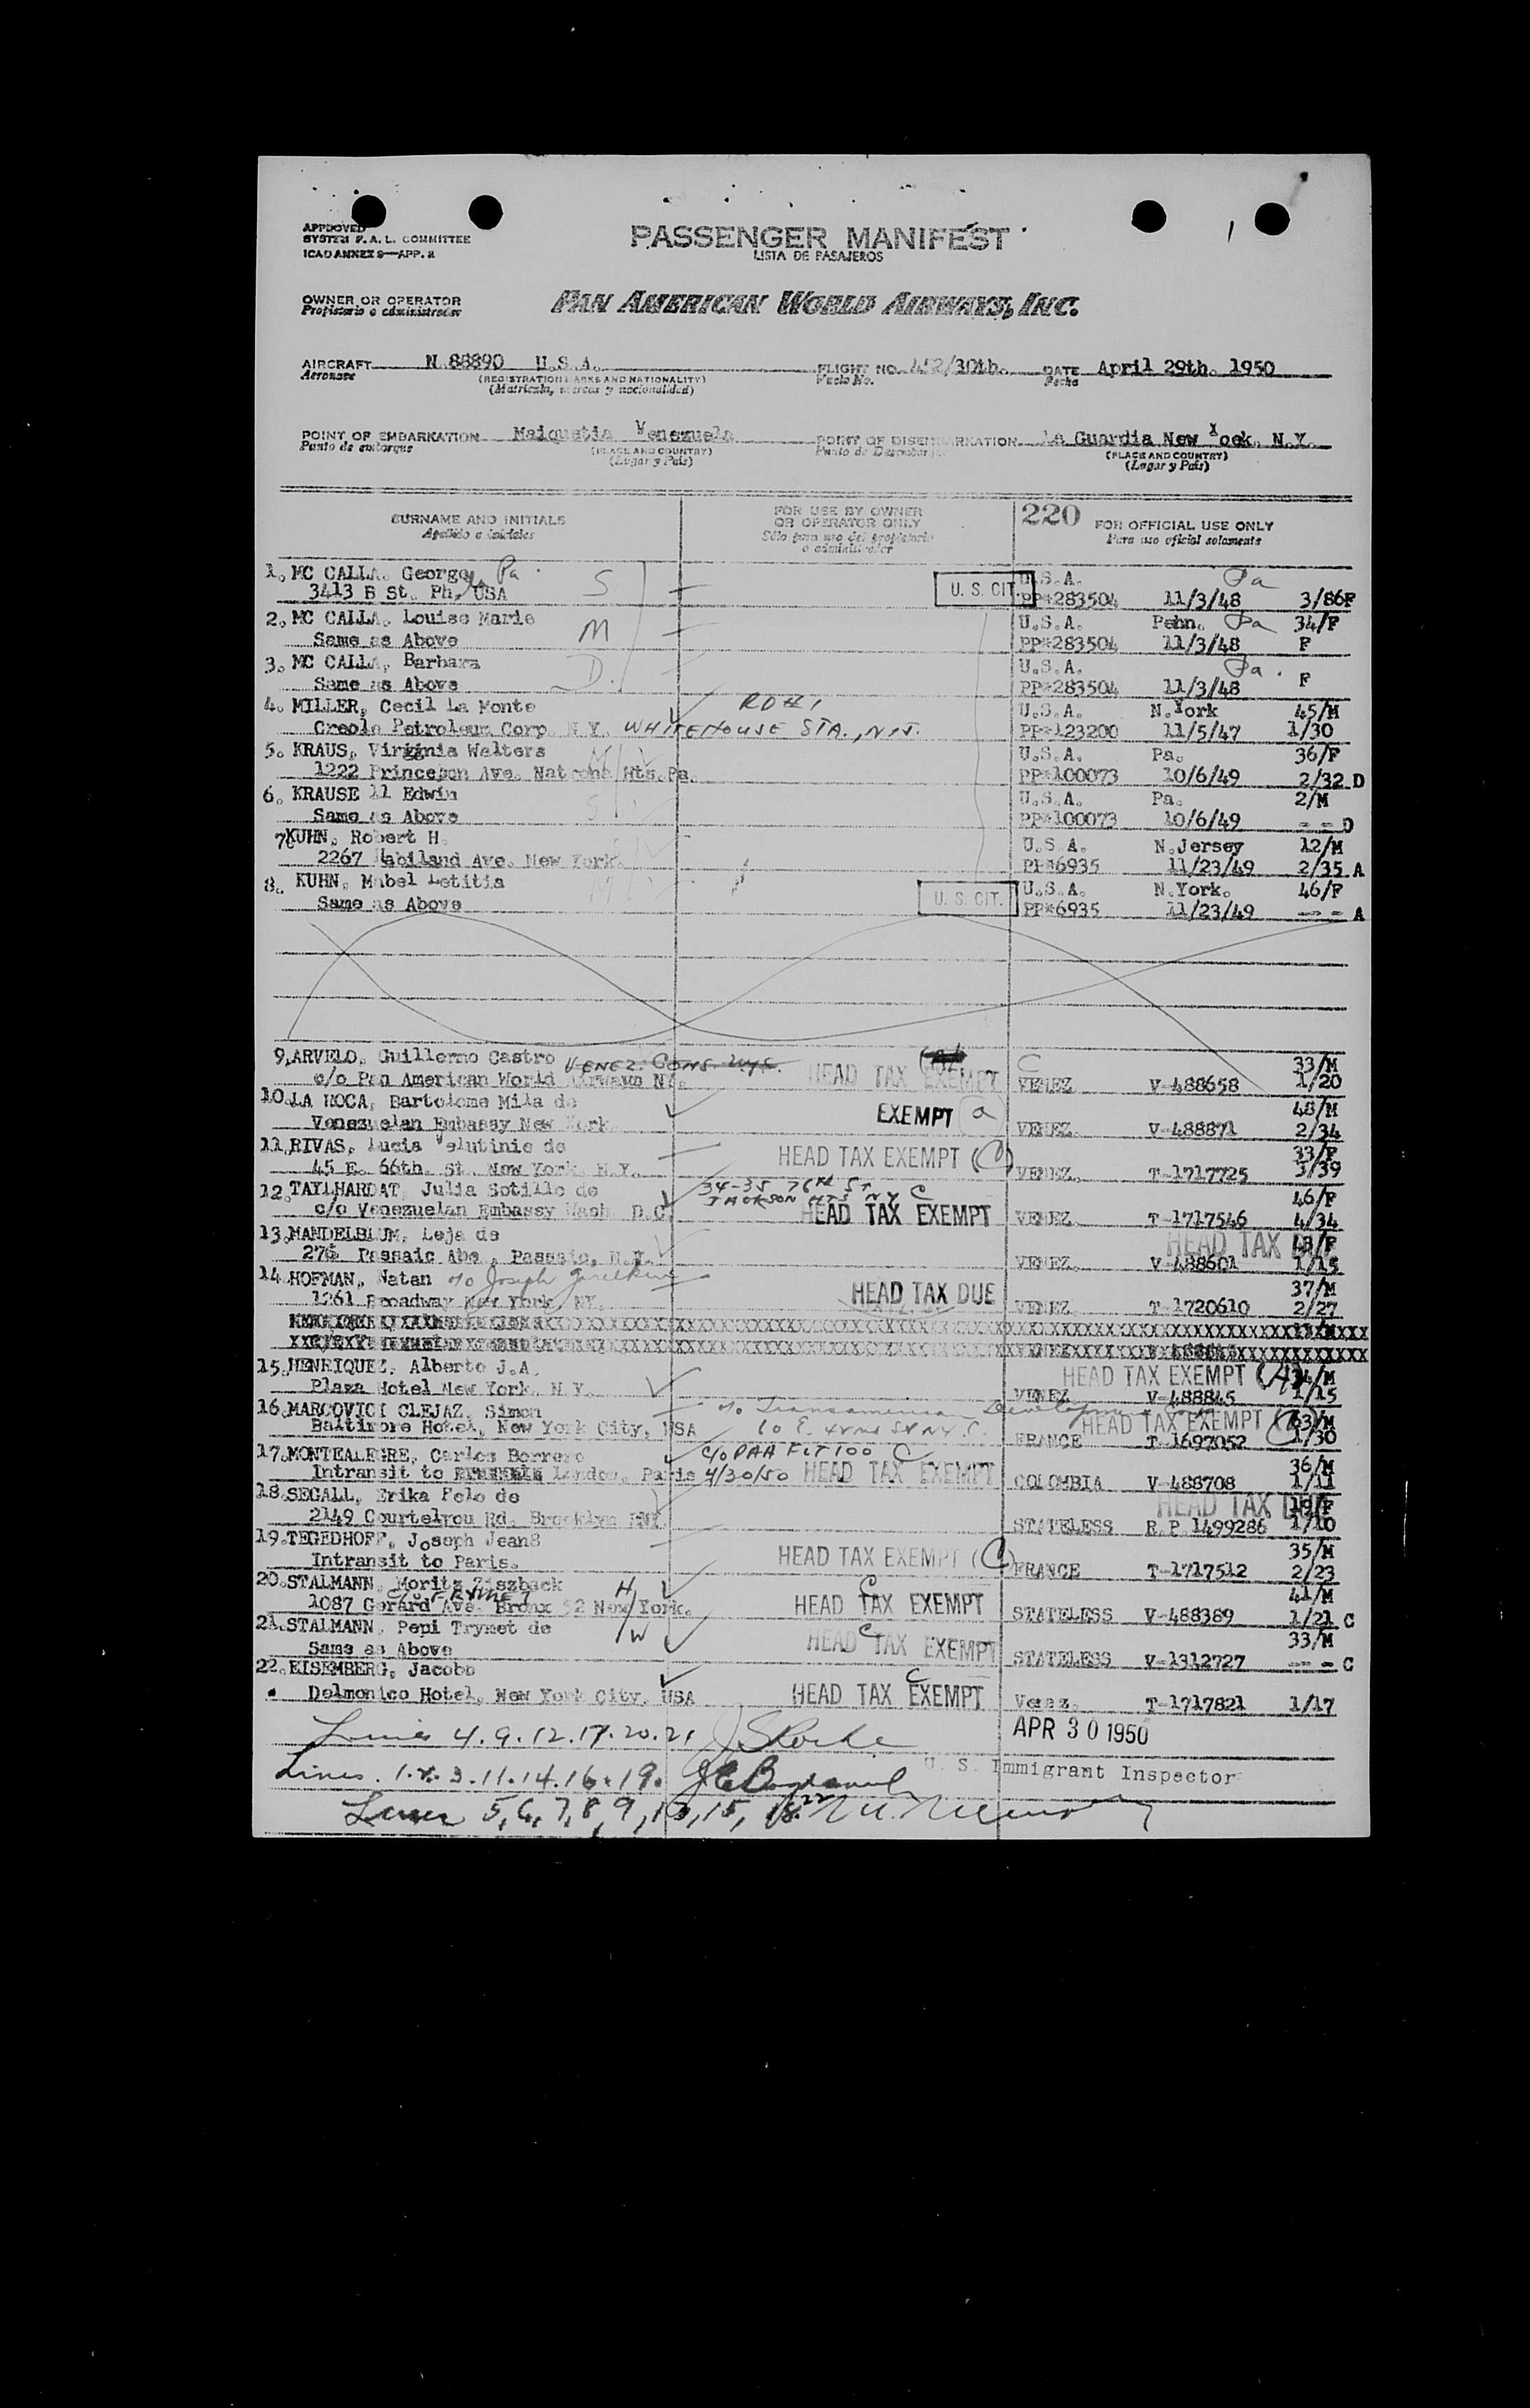 APPROVED
SYSTEM F. A. L. COMMITTEE
ICAO ANNEX 9—APP. 2
PASSENGER MANIFEST
LISTA DE PASAJEROS
OWNER OR OPERATOR
Propietario o administrador
PAN AMERICAN WORLD AIRWAYS, INC.
AIRCRAFT N.88890 U.S.A. FLIGHT NO. 452/30th. DATE April 29th. 1950
Aeronave (REGISTRATION MARKS AND NATIONALITY) Vuelo No. Fecha
(Matrícula, marcas y nacionalidad)
POINT OF EMBARKATION Maiquetia Venezuela POINT OF DISEMBARKATION La Guardia New Yoek, N.Y.
Punto de embarque (PLACE AND COUNTRY) Punto de Desembarque (PLACE AND COUNTRY)
(Lugar y País) (Lugar y País)
SURNAME AND INITIALS FOR USE BY OWNER OR OPERATOR ONLY 220 FOR OFFICIAL USE ONLY
Apellido e iniciales Sólo para uso del propietario o administrador Para uso oficial solamente
1. MC CALLA. George Pa. S U.S.A. Pa
3413 B St. Ph, USA U. S. CIT. PP*283504 11/3/48 3/86F
2. MC CALLA. Louise Marie M U.S.A. Pehn. Pa 34/F
Same as Above PP*283504 11/3/48 F
3. MC CALLA, Barbara D. U.S.A. Pa. F
Same as Above PP*283504 11/3/48
4. MILLER, Cecil La Monte RD#1 U.S.A. N.York 45/M
Creole Petroleum Corp. N.Y. WHITEHOUSE STA., N.J. PP*123200 11/5/47 1/30
5. KRAUS, Virginia Walters M U.S.A. Pa. 36/F
1222 Princeton Ave. Natrona Hts.Pa. PP*100073 10/6/49 2/32 D
6. KRAUSE ll Edwin S U.S.A. Pa. 2/M
Same as Above PP*100073 10/6/49 - - D
7. KUHN, Robert H. U.S.A. N.Jersey 12/M
2267 Habiland Ave. New York. PP*6935 11/23/49 2/35 A
8. KUHN, Mabel Letitia M U.S.A. N.York. 46/F
Same as Above U. S. CIT. PP*6935 11/23/49 - - A
9. ARVELO, Guillermo Castro VENEZ. CONS. NYC. C 33/M
c/o Pan American World Airways NY. HEAD TAX EXEMPT VENEZ V-488658 1/20
10. LA ROCA, Bartolome Mila de 48/M
Venezuelan Embassy New York EXEMPT (a) VENEZ. V-488871 2/34
11. RIVAS, Lucia Velutinie de HEAD TAX EXEMPT (C) 33/F
45 E. 66th. St. New York. N.Y. VENEZ. T-1717725 3/39
12. TAYLHARDAT, Julia Sotillo de 34-35 76th ST C 46/F
JACKSON HTS NY
c/o Venezuelan Embassy Wash. D.C. HEAD TAX EXEMPT VENEZ T-1717546 4/34
13. MANDELBLUM, Leja de HEAD TAX DUE 48/F
276 Passaic Abe., Passaic, N.Y. VENEZ. V-488601 1/15
14. HOFMAN, Natan c/o Joseph 37/M
1261 Broadway New York, NY. HEAD TAX DUE VENEZ T-1720610 2/27
15. HENRIQUEZ, Alberto J.A. HEAD TAX EXEMPT (A) 34/M
Plaza Hotel New York. N.Y. VENEZ V-488845 1/15
16. MARCOVICI CLEJAZ, Simon c/o Transamerican Development HEAD TAX EXEMPT 63/M
Baltimore Hotel, New York City, USA 60 E. 42nd St N.Y.C. FRANCE T-1697052 1/30
17. MONTEALEGRE, Carlos Borrero c/o PAA FLT 100 C 36/M
Intransit to London, Paris 4/30/50 HEAD TAX EXEMPT COLOMBIA V-488708 1/11
18. SEGALL, Erika Polo de HEAD TAX DUE 19/F
2149 Courtelyou Rd. Brooklyn NY. STATELESS R.P.1499286 1/10
19. TEGEDHOFF, Joseph JeanS 35/M
Intransit to Paris. HEAD TAX EXEMPT (C) FRANCE T-1717512 2/23
20. STALMANN, Moritz Ziszback H C 41/M
1087 Gerard Ave. Bronx 52 New York. HEAD TAX EXEMPT STATELESS V-488389 1/21 C
21. STALMANN, Pepi Trymet de W C 33/M
Same as Above HEAD TAX EXEMPT STATELESS V-1312727 - - C
22. EISEMBERG, Jacobo C
Delmonico Hotel, New York City, USA HEAD TAX EXEMPT Venez. T-1717821 1/17
Lines 4.9.12.17.20.21 APR 30 1950
Lines 1.2.3.11.14.16.19. U. S. Immigrant Inspector
Lines 5, 6, 7, 8, 9, 13, 15, 18. 22